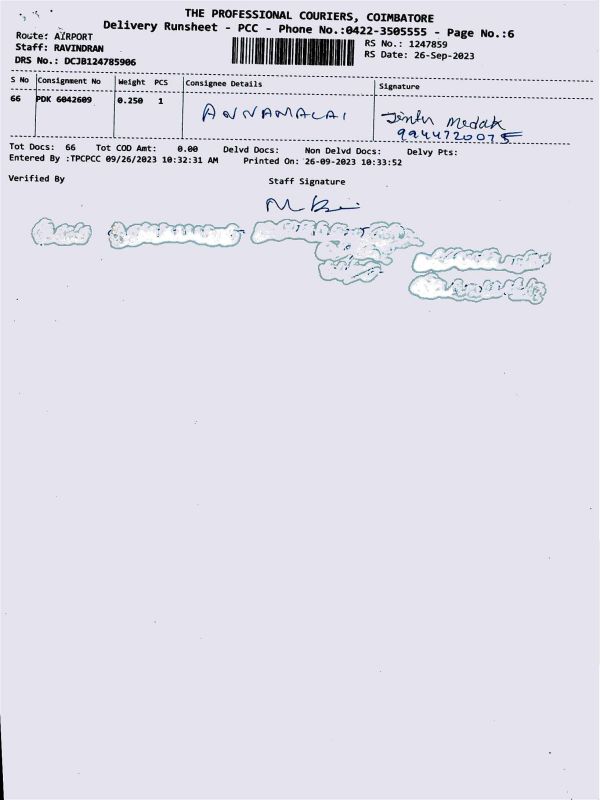 THE PROFESSIONAL COURIERS, COIMBATORE
Delivery Runsheet - PCC - Phone No.:0422-3505555 - Page No.:6
Route: AIRPORT
RS No.: 1247859
Staff: RAVINDRAN
RS Date: 26-Sep-2023
DRS No.: DCJB124785906
S No Consignment No Weight PCS Consignee Details Signature
66 PDK 6042609 0.250 1 ANNAMALAI
9944720075
Tot Docs: 66 Tot COD Amt: 0.00 Delvd Docs: Non Delvd Docs: Delvy Pts:
Entered By :TPCPCC 09/26/2023 10:32:31 AM Printed On: 26-09-2023 10:33:52
Verified By Staff Signature